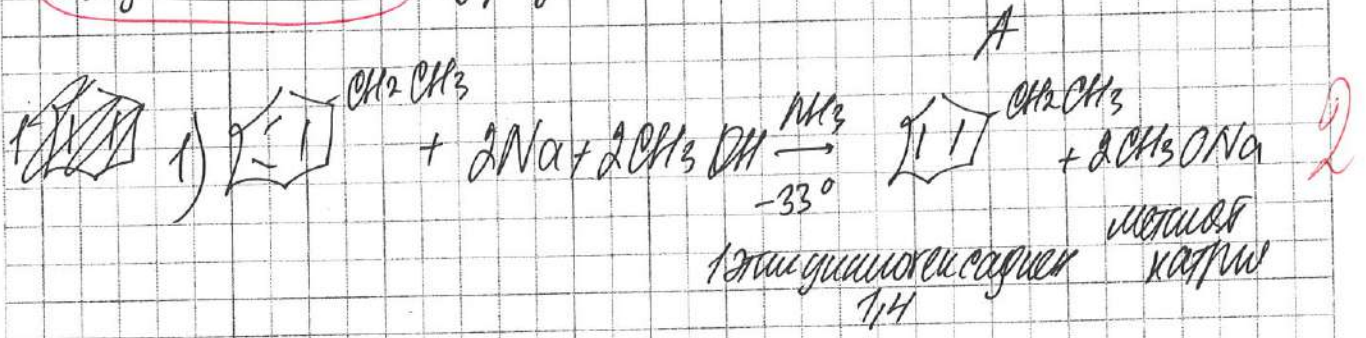 A
1) CH2 CH3 + 2Na + 2CH3 OH NH3 → -33° CH2CH3 + 2CH3ONa 2
1этилциклогексадиен метилат
1,4 натрия